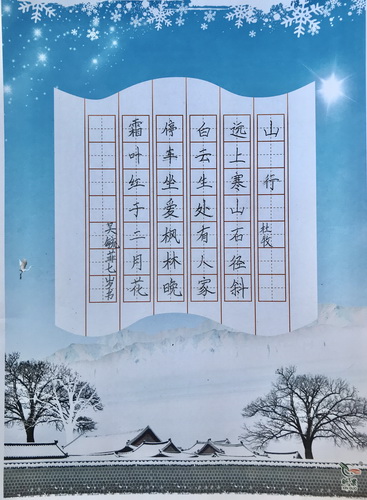 山行
杜牧
远上寒山石径斜
白云生处有人家
停车坐爱枫林晚
霜叶红于二月花
吴 菲七岁书